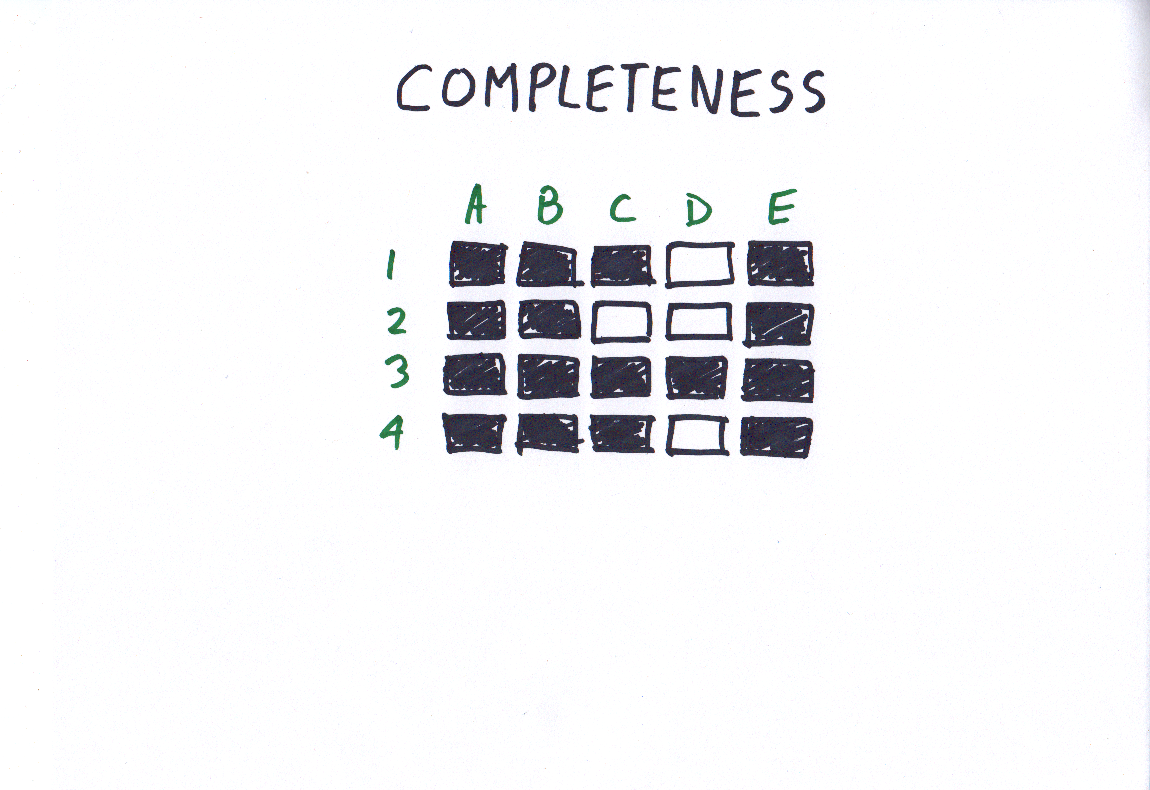 COMPLETENESS
A B C D E
1
2
3
4